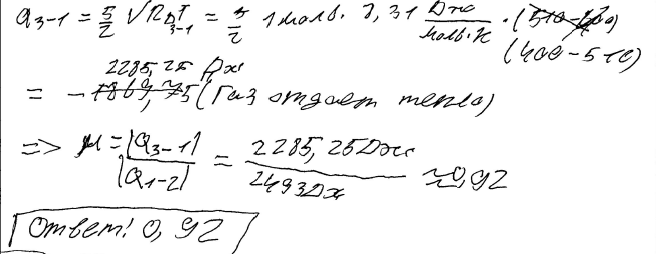 Q₃₋₁ = 5/2 √RΔT₃₋₁ = 5/2 1 моль · 8,31 Дж/моль·К · (400-510)
2285,25 Дж
= - (Газ отдает тепло)
=> μ = |Q₃₋₁|/|Q₁₋₂| = 2285,25Дж/2493Дж ≈ 0,92
Ответ: 0,92